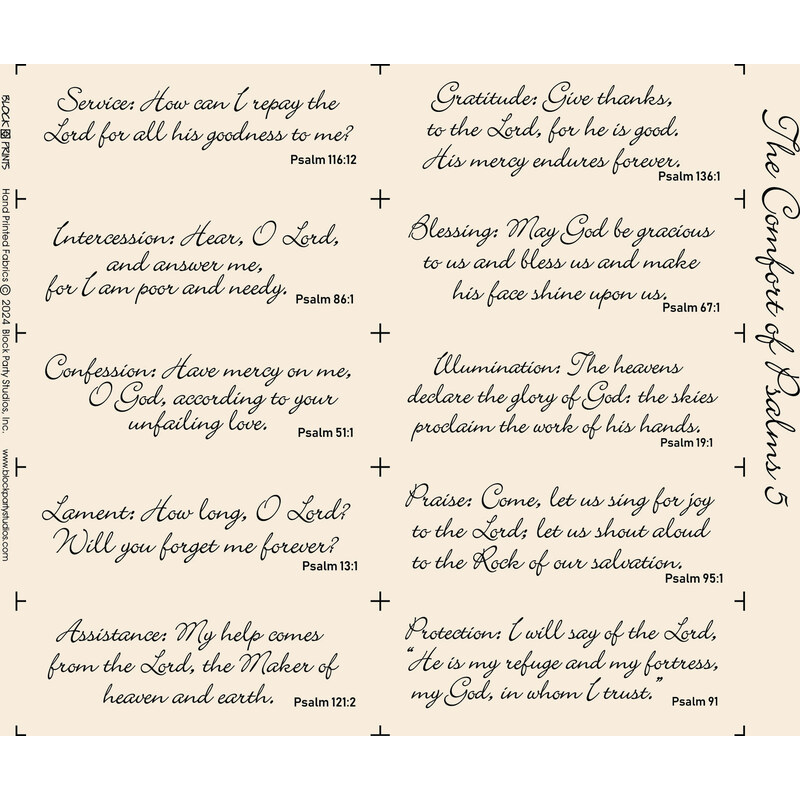 Service: How can I repay the
Lord for all his goodness to me?
Psalm 116:12
Gratitude: Give thanks,
to the Lord, for he is good.
His mercy endures forever.
Psalm 136:1
Intercession: Hear, O Lord,
and answer me,
for I am poor and needy.
Psalm 86:1
Blessing: May God be gracious
to us and bless us and make
his face shine upon us.
Psalm 67:1
Confession: Have mercy on me,
O God, according to your
unfailing love.
Psalm 51:1
Illumination: The heavens
declare the glory of God: the skies
proclaim the work of his hands.
Psalm 19:1
Lament: How long, O Lord?
Will you forget me forever?
Psalm 13:1
Praise: Come, let us sing for joy
to the Lord; let us shout aloud
to the Rock of our salvation.
Psalm 95:1
Assistance: My help comes
from the Lord, the Maker of
heaven and earth.
Psalm 121:2
Protection: I will say of the Lord,
“He is my refuge and my fortress,
my God, in whom I trust.”
Psalm 91
The Comfort of Psalms 5
BLOCK PRINTS Hand Printed Fabrics © 2024 Block Party Studios, Inc. www.blockpartystudios.com